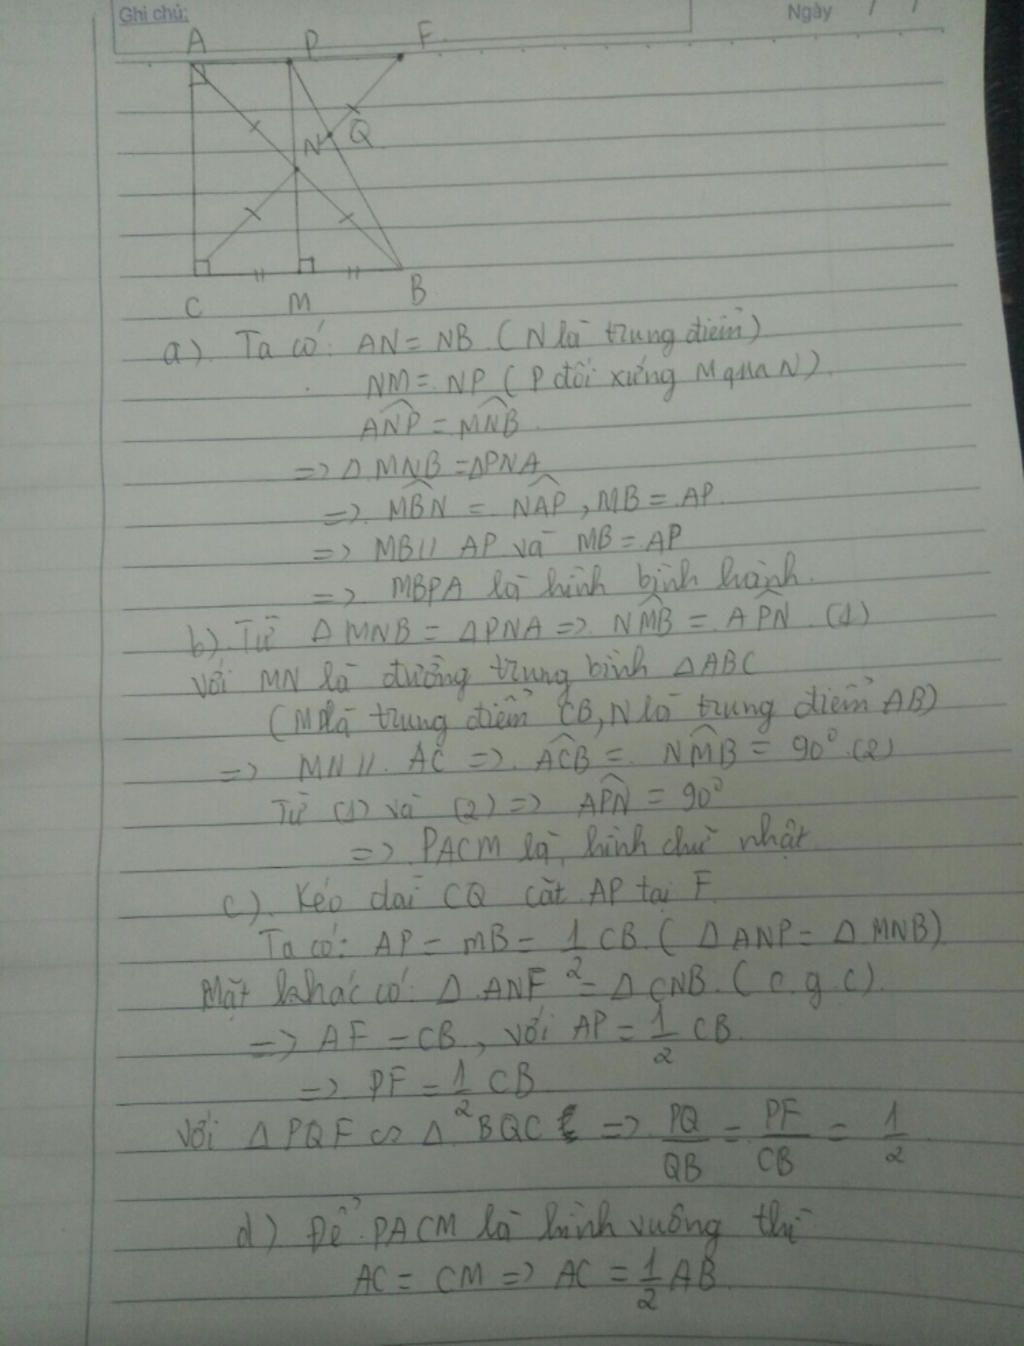 Ghi chú:
Ngày / /
A P F
N Q
C M B
a). Ta có: AN = NB (N là trung điểm)
NM = NP (P đối xứng M qua N)
$\widehat{ANP} = \widehat{MNB}$
=> Δ MNB = ΔPNA
=> $\widehat{MBN} = \widehat{NAP}$, MB = AP
=> MB // AP và MB = AP
=> MBPA là hình bình hành.
b). Từ Δ MNB = ΔPNA => $\widehat{NMB} = \widehat{APN}$ (1)
Với MN là đường trung bình ΔABC
(M là trung điểm CB, N là trung điểm AB)
=> MN // AC => $\widehat{ACB} = \widehat{NMB} = 90^0$ (2)
Từ (1) và (2) => $\widehat{APN} = 90^0$
=> PACM là hình chữ nhật
c). Kéo dài CQ cắt AP tại F
Ta có: AP = MB = $\frac{1}{2}$ CB. (Δ ANP = Δ MNB)
Mặt khác có Δ ANF = Δ CNB. (c.g.c)
=> AF = CB, với AP = $\frac{1}{2}$ CB
=> PF = $\frac{1}{2}$ CB
Với Δ PQF ∽ Δ BQC => $\frac{PQ}{QB} = \frac{PF}{CB} = \frac{1}{2}$
d) Để PACM là hình vuông thì
AC = CM => AC = $\frac{1}{2}$ AB